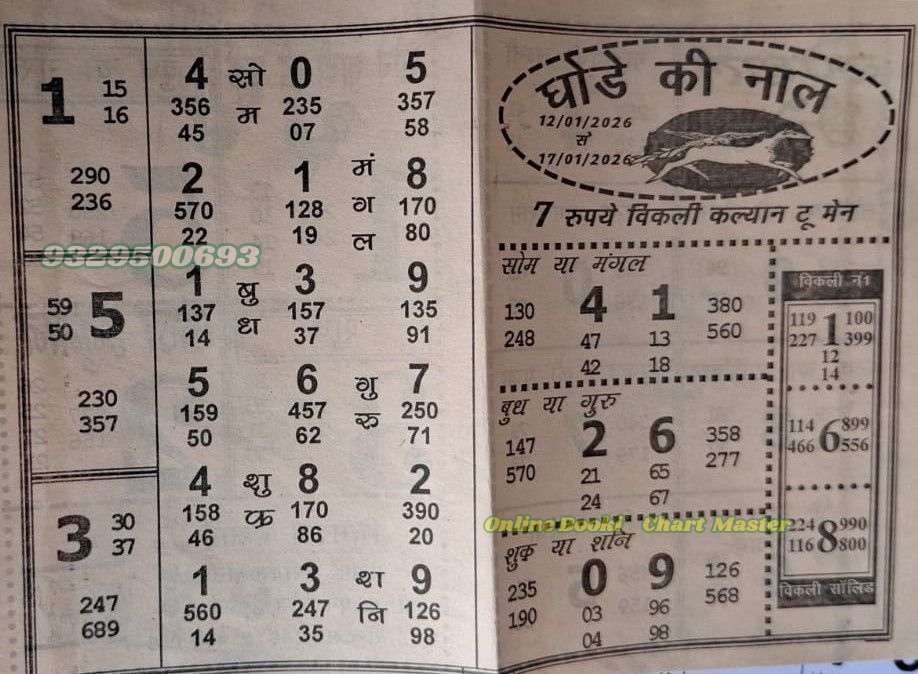 1 15
16
290
236
59
50 5
230
357
3 30
37
247
689
4 सो 0 5
356 म 235 357
45 07 58
2 1 मं 8
570 128 ग 170
22 19 ल 80
1 बु 3 9
137 ध 157 135
14 37 91
5 6 गु 7
159 457 रु 250
50 62 71
4 शु 8 2
158 क्र 170 390
46 86 20
1 3 श 9
560 247 नि 126
14 35 98
9329500693
घोडे की नाल
12/01/2026
से
17/01/2026
7 रुपये विकली कल्यान टू मेन
सोम या मंगल
130 4 1 380
248 47 13 560
42 18
बुध या गुरु
147 2 6 358
570 21 65 277
24 67
Online Booki Chart Master
शुक्र या शनि
235 0 9 126
190 03 96 568
04 98
विकली नं1
119 1 100
227 399
12
14
114 6 899
466 556
224 8 990
116 800
विकली सॉलिड